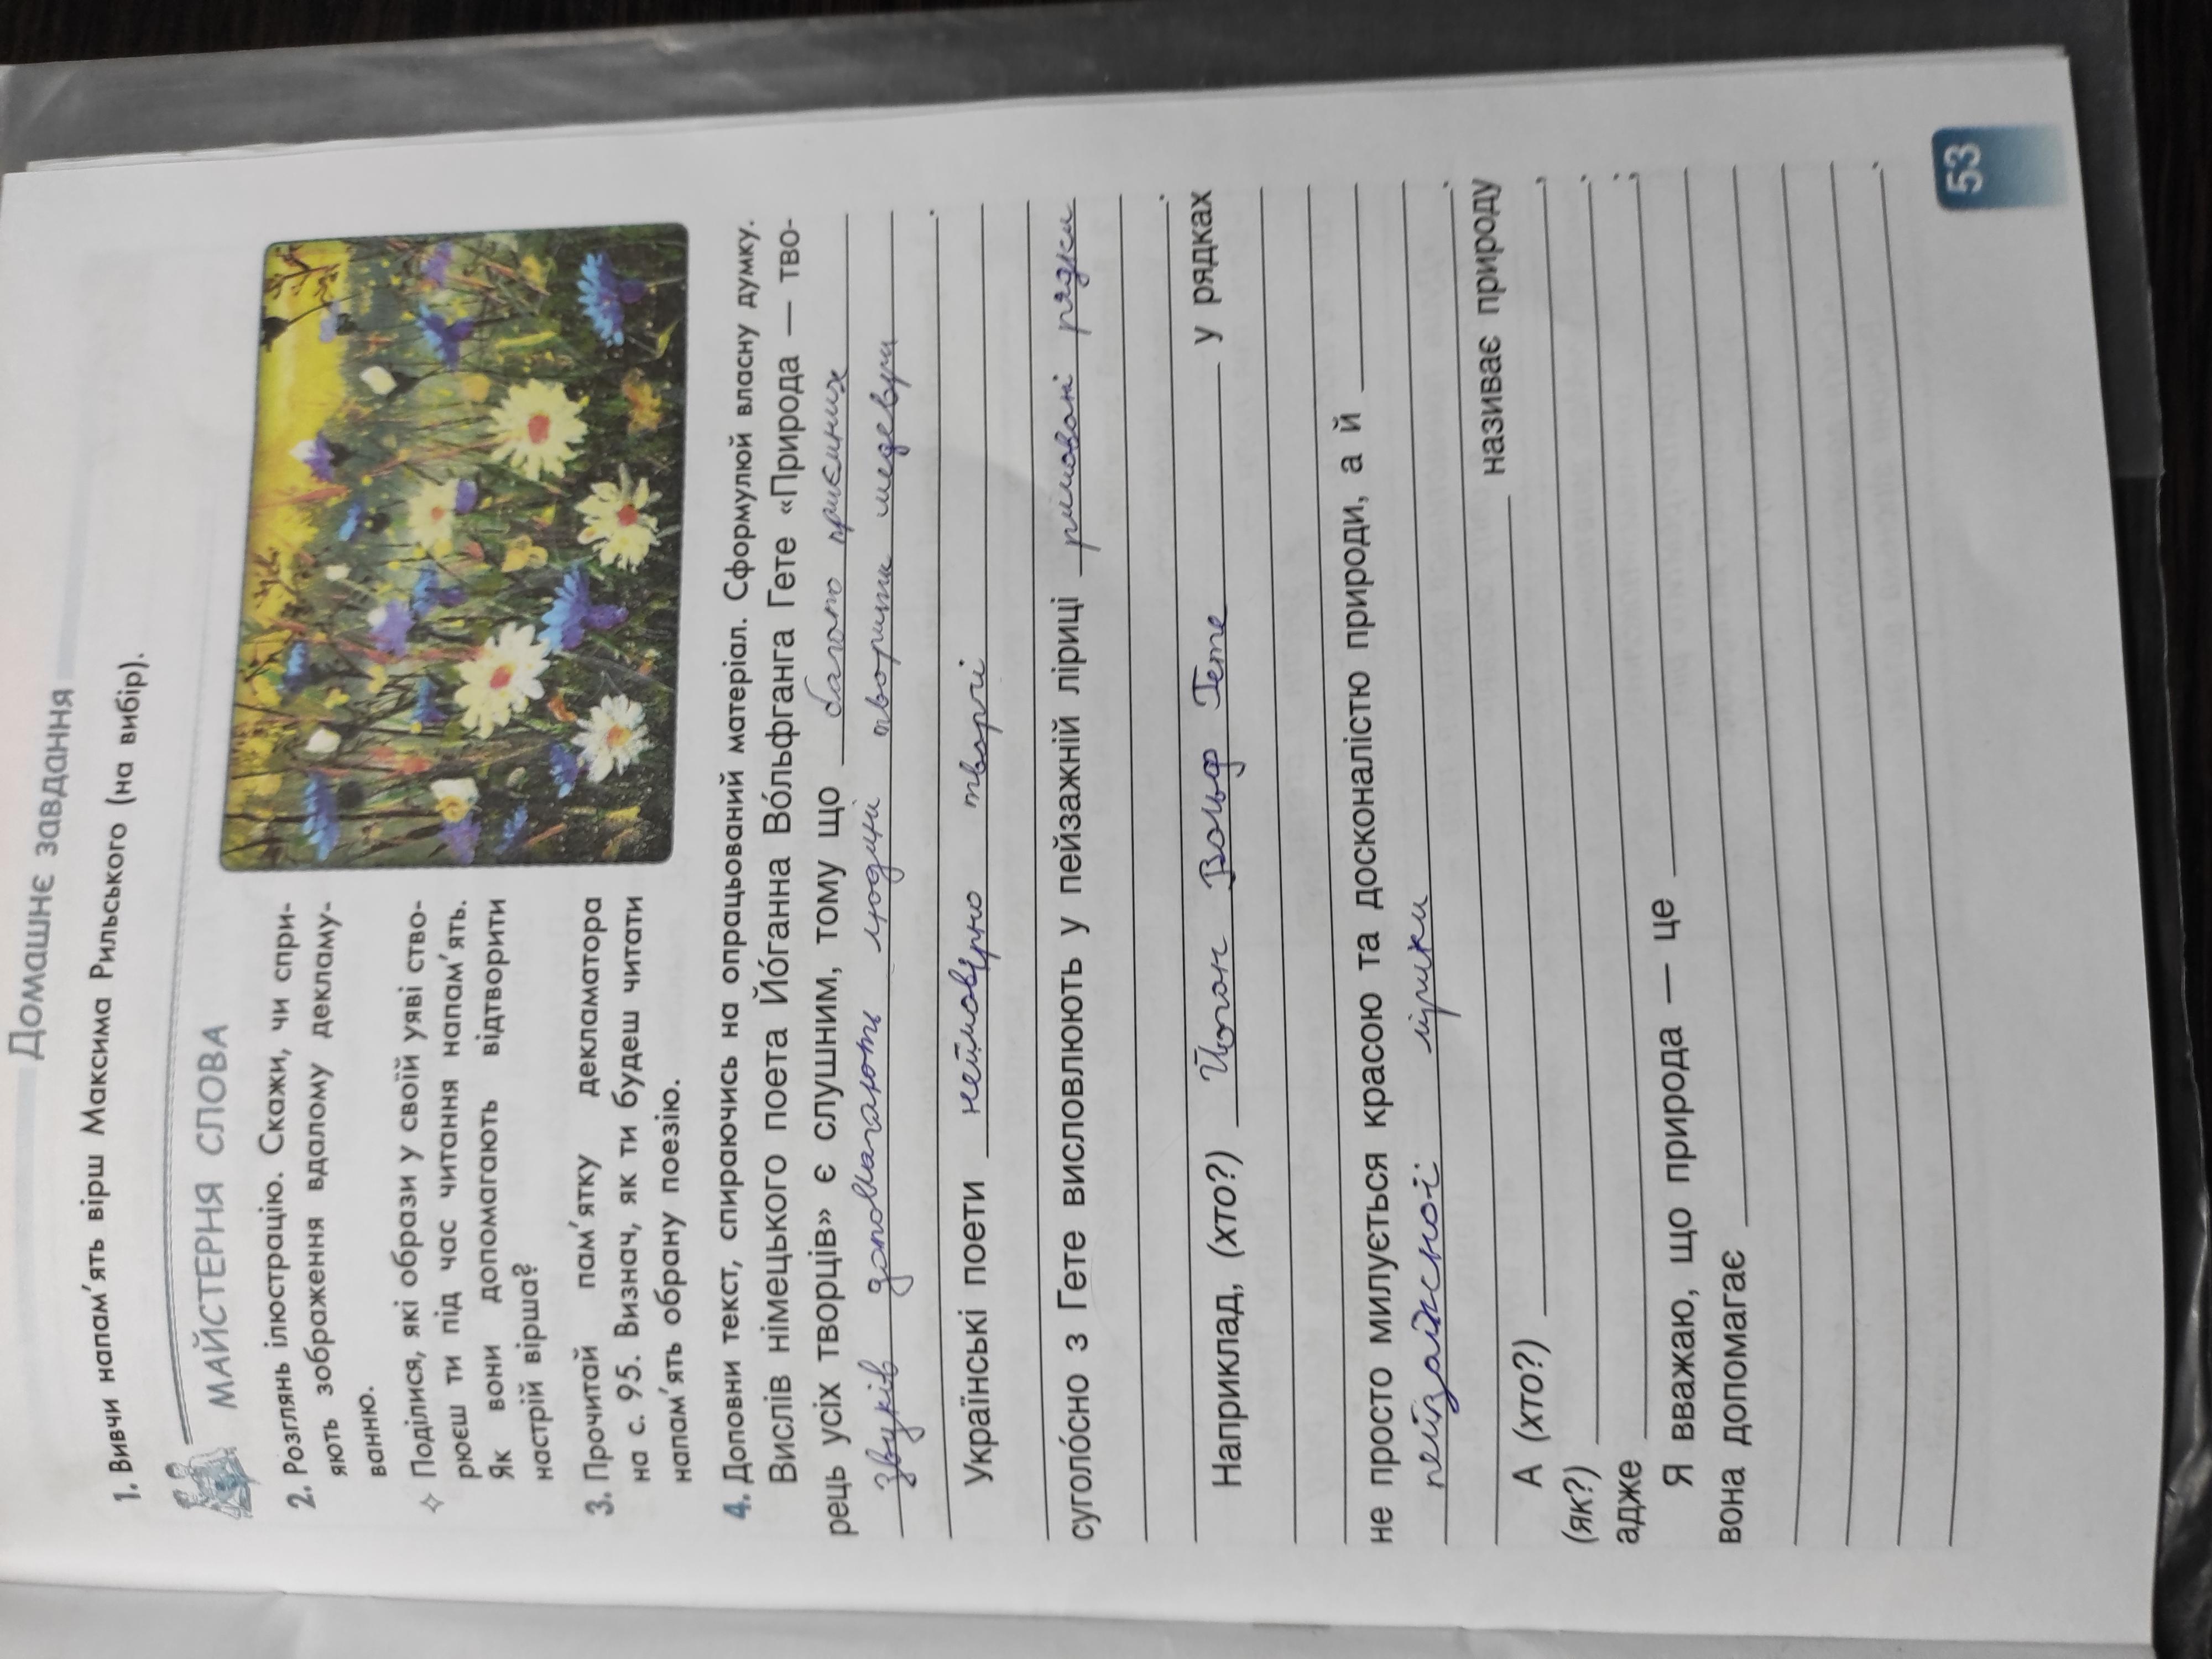 Домашнє завдання
1. Вивчи напам'ять вірш Максима Рильського (на вибір).
МАЙСТЕРНЯ СЛОВА
2. Розглянь ілюстрацію. Скажи, чи спри-
яють зображення вдалому декламу-
ванню.
✧ Поділися, які образи у своїй уяві ство-
рюєш ти під час читання напам'ять.
Як вони допомагають відтворити
настрій вірша?
3. Прочитай пам'ятку декламатора
на с. 95. Визнач, як ти будеш читати
напам'ять обрану поезію.
4. Доповни текст, спираючись на опрацьований матеріал. Сформулюй власну думку.
Вислів німецького поета Йо́ганна Во́льфганга Гете «Природа — тво-
рець усіх творців» є слушним, тому що багато приємних
звуків допомагають людині творити шедеври
.
Українські поети неймовірно творчі
суголо́сно з Гете висловлюють у пейзажній ліриці римовані рядки
.
Наприклад, (хто?) Йоган Вольф Гете у рядках
не просто милується красою та досконалістю природи, а й
пейзажної лірики .
називає природу
А (хто?) ,
(як?) .
адже ;
Я вважаю, що природа — це
вона допомагає
.
53